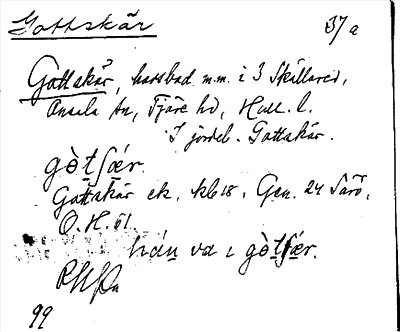 Gottskär 37a
Gottskär, havsbad m.m. i 3 Skällared,
Onsala sn, Fjäre hd, Hall. l.
I jordel. Gottakär.
gò̀tʃæ̀r.
Gottskär ek. kbl 18, Gen. 24 Särö,
O.H. 61.
hán va ı gò̀tʃæ̀r.
99